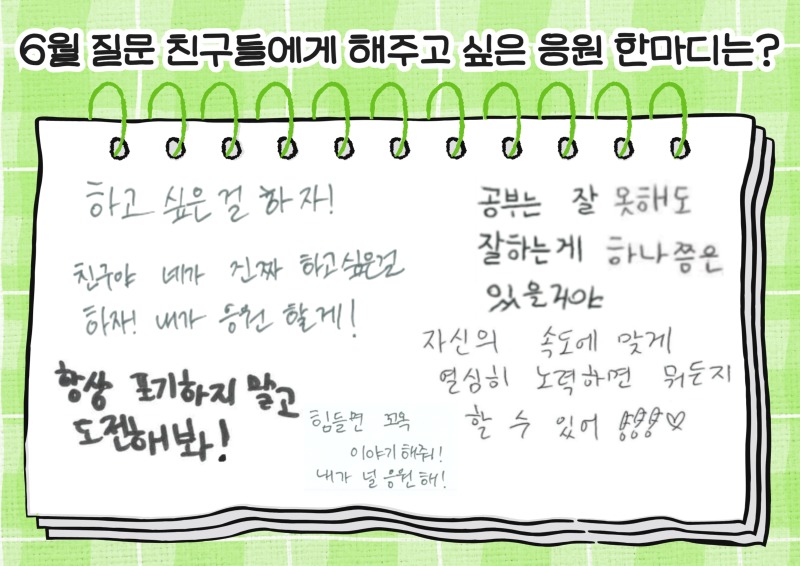 6월 질문 친구들에게 해주고 싶은 응원 한마디는?
하고 싶은 걸 하자!
친구야 네가 진짜 하고싶은걸
하자! 내가 응원 할게!
항상 포기하지 말고
도전해봐!
힘들면 꼬옥
이야기해줘!
내가 널 응원해!
공부는 잘 못해도
잘하는게 하나쯤은
있을거야
자신의 속도에 맞게
열심히 노력하면 뭐든지
할 수 있어 홧홧♡